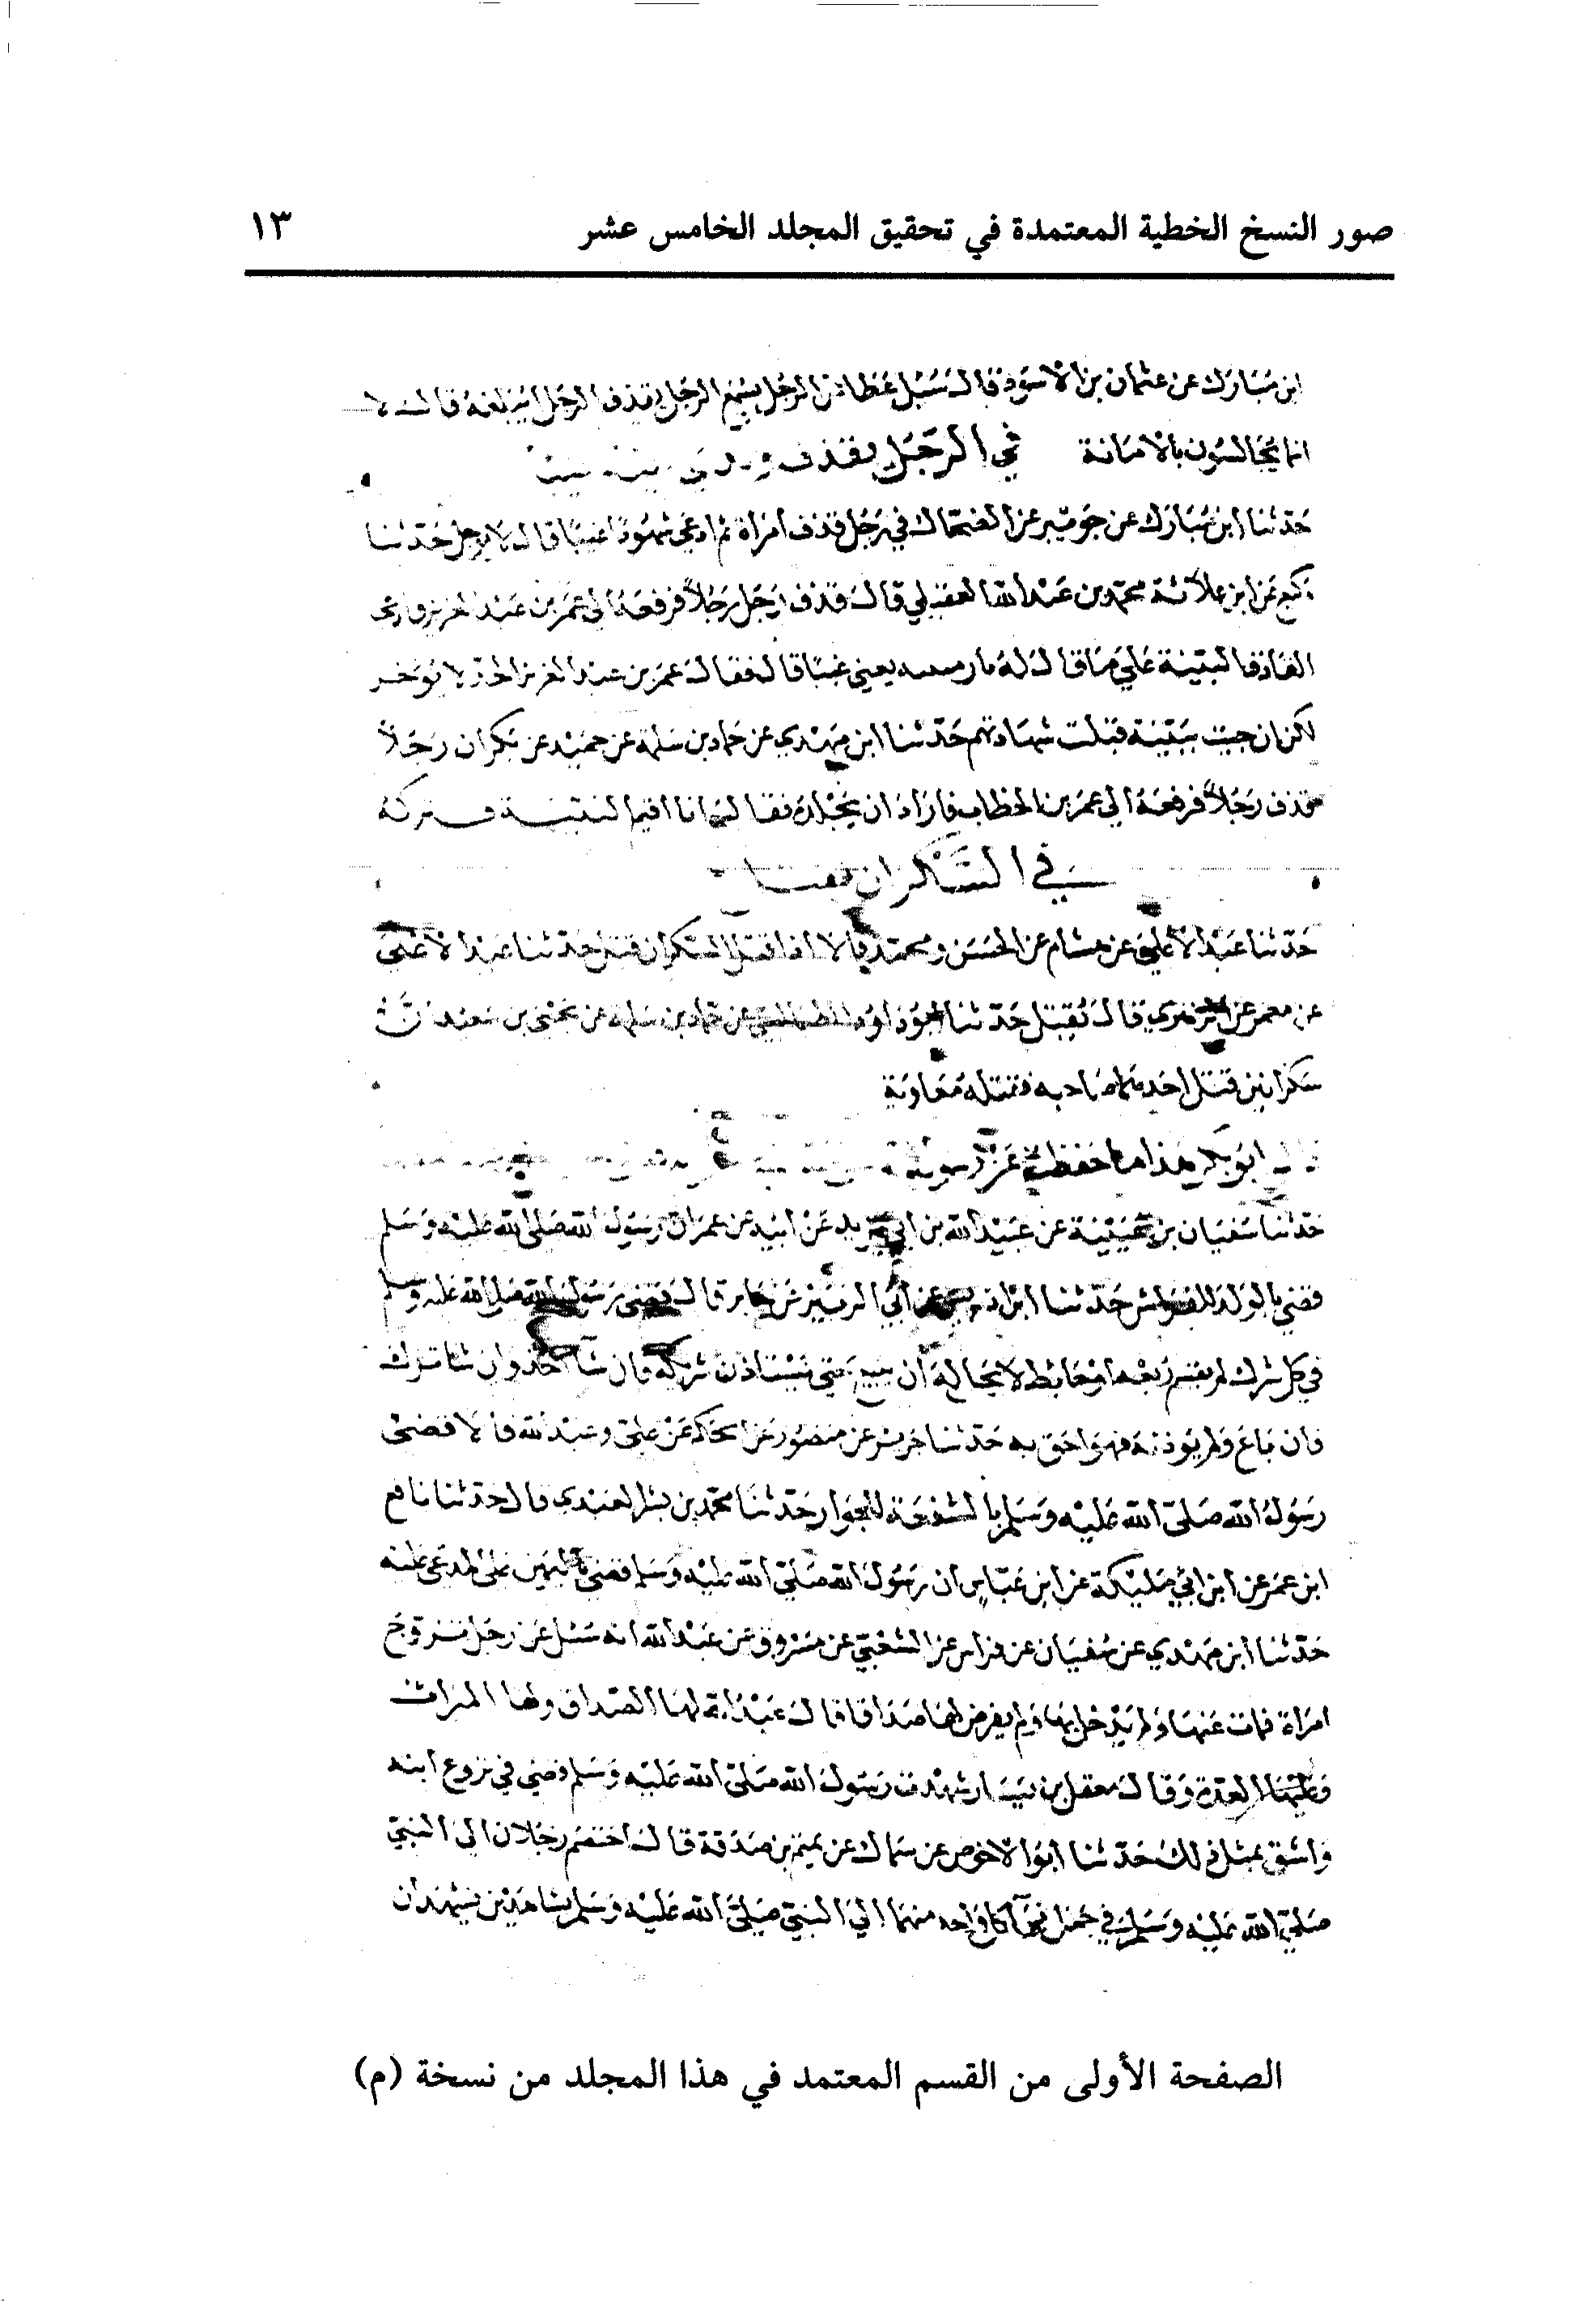 صور النسخ الخطية المعتمدة في تحقيق المجلد الخامس عشر ١٣
ابن مبارك عن عثمان بن الاسود قال سئل عطا عن الرجل يسمع الرجل يقذف الرجل ايبلغه قال لا
انما تجالسون بالامانة في الرجل يقذف
حدثنا ابن مبارك عن جويبر عن الضحاك في رجل قذف امراة ثم ادعي شهودا غيبا قال لا يوجل حدثنا
وكيع عن ابن علاثة محمد بن عبد الله العقيلي قال قذف رجل رجلا فرفعه الي عمر بن عبد العزيز فادعي
القاذف البينة علي ما قال له يعني غيبا قال فقال عمر بن عبد العزيز الحد لا يوخر
لكن ان جيت ببينة قبلت شهادتهم حدثنا ابن مهدي عن حماد بن سلمة عن حميد عن بكر ان رجلا
قذف رجلا فرفعه الي عمر بن الخطاب فاراد ان يجلده فقال انا اقيم البينة فتركه
في السكران يقتل
حدثنا عبد الاعلي عن هشام عن الحسن ومحمد قالا اذا قتل السكران قتل حدثنا عبد الاعلي
عن معمر عن الزهري قال يقتل حدثنا ابو داود الطيالسي عن حماد بن سلمة عن يحيي بن سعيد ان
سكرانين قتل احدهما صاحبه فقتله معاوية
قال ابو بكر هذا ما حفظت عن رسول الله
حدثنا سفيان بن عيينة عن عبيد الله بن ابي يزيد عن ابيه عن عمر ان رسول الله صلي الله عليه وسلم
قضي بالولد للفراش حدثنا ابن ادريس عن ابي الزبير عن جابر قال قضي رسول الله صلي الله عليه وسلم
في كل شرك لم يقسم ربعة او حائط لا يحل له ان يبيع حتي يستاذن شريكه فان شا اخذ وان شا ترك
فان باع ولم يوذنه فهو احق به حدثنا جرير عن منصور عن الحكم عن علي وعبد الله قالا قضي
رسول الله صلي الله عليه وسلم بالشفعة للجوار حدثنا محمد بن بشر العبدي قال حدثنا نافع
ابن عمر عن ابن ابي مليكة عن ابن عباس ان رسول الله صلي الله عليه وسلم قضي باليمين علي المدعي عليه
حدثنا ابن مهدي عن سفيان عن فراس عن الشعبي عن مسروق عن عبد الله انه سئل عن رجل تزوج
امراة فمات عنها ولم يدخل بها ولم يفرض لها صداقا قال عبد الله لها الصداق ولها الميراث
وعليها العدة وقال معقل بن يسار شهدت رسول الله صلي الله عليه وسلم قضي في بروع ابنة
واشق بمثل ذلك حدثنا ابو الاحوص عن سماك عن تميم بن صدقة قال اختصم رجلان الي النبي
صلي الله عليه وسلم في جمل فجا كل واحد منهما الي النبي صلي الله عليه وسلم بشاهدين يشهدان
الصفحة الأولى من القسم المعتمد في هذا المجلد من نسخة (م)